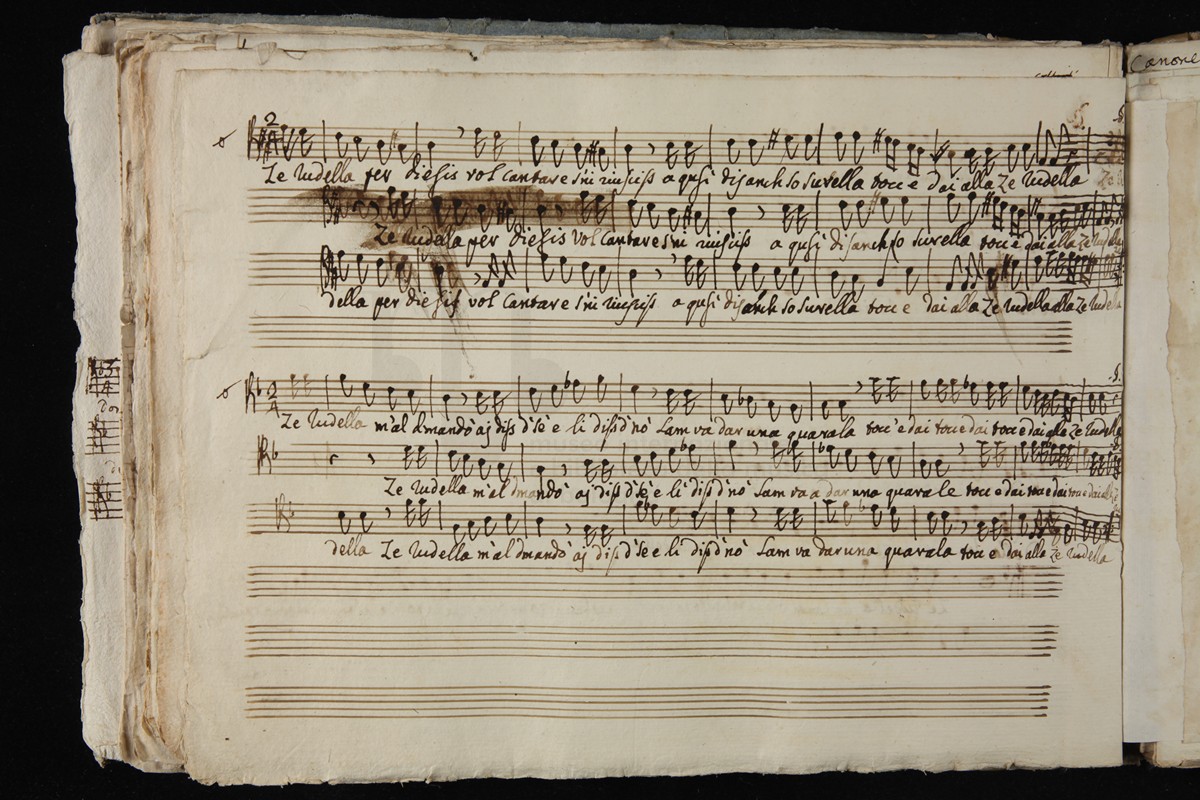 Canone
Ze Rudella per diesis vol Cantare e s'ni riusciss a qusi disanch so surella tocc e dai alla Ze Rudella
Ze Rudella per diesis vol Cantare s'ni riusciss a qusi disanch so surella tocc e dai alla Ze Rudella
della per diesis vol Cantare s'ni riusciss a qusi disanch so surella tocc e dai alla Ze Rudella alla Ze Rudella
Ze Rudella m'al d'mandò aj diss d' sè e li diss d' nò Lam va dar una quarala tocc e dai tocc e dai tocc e dai alla Ze Rudella
Ze Rudella m'al dmandò aj diss d' sè e li diss d' nò Lam va a dar una quarale tocc e dai tocc e dai tocc e dai alla
della Ze Rudella m'al dmandò aj diss d' sè e li diss d' nò Lam va dar una quarala tocc e dai alla Ze Rudella